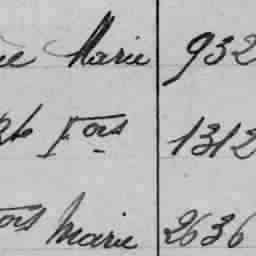 ne Marie 932
Bte Fois 1312
ois Marie 2636